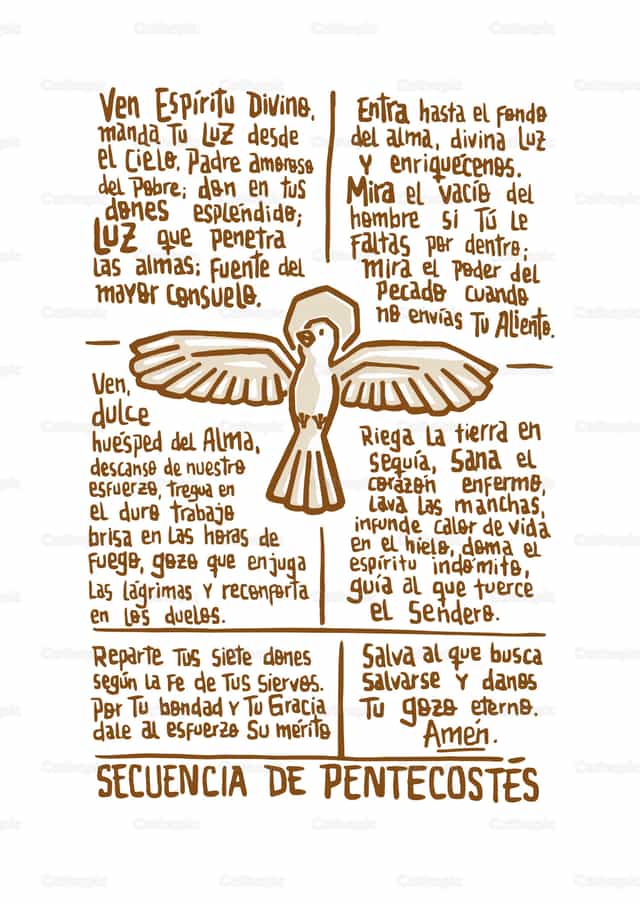 Ven Espíritu Divino,
manda Tu Luz desde
el Cielo. Padre amoroso
del Pobre; don en tus
dones espléndido;
Luz que penetra
las almas; fuente del
mayor consuelo.
Ven,
dulce
huésped del Alma,
descanso de nuestro
esfuerzo, tregua en
el duro trabajo
brisa en las horas de
fuego, gozo que enjuga
las lágrimas y reconforta
en los duelos.
Entra hasta el fondo
del alma, divina Luz
y enriquécenos.
Mira el vacío del
hombre si Tú le
faltas por dentro;
mira el poder del
pecado cuando
no envías Tu Aliento.
Riega la tierra en
sequía, Sana el
corazón enfermo,
lava las manchas,
infunde calor de vida
en el hielo, doma el
espíritu indómito,
guía al que tuerce
el Sendero.
Reparte Tus siete dones
según la Fe de Tus siervos.
Por Tu bondad y Tu Gracia
dale al esfuerzo Su mérito
Salva al que busca
Salvarse y danos
Tu gozo eterno.
Amén.
SECUENCIA DE PENTECOSTÉS
Cathopic